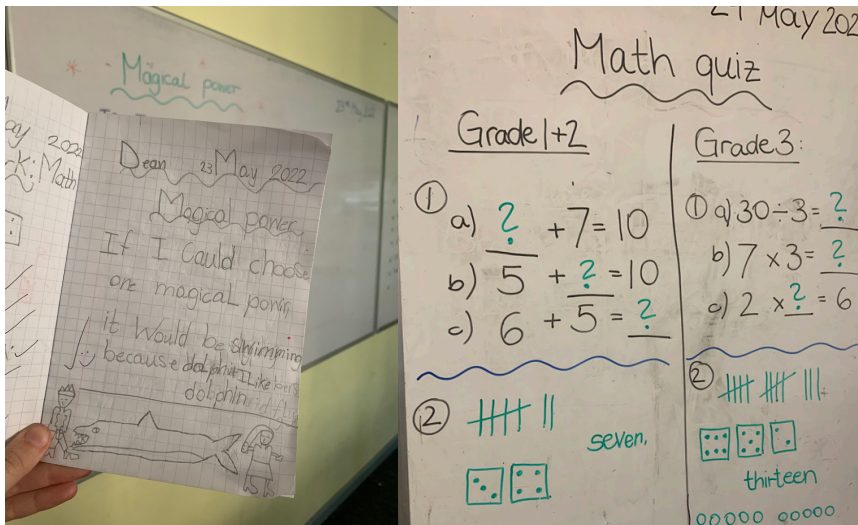 Magical power
2022
K: Math
Dean 23 May 2022
Magical power
If I could choose
one magical power,
it would be
because I Like
dolphin
May 202
Math quiz
Grade 1+2
1
a) ? +7=10
b) 5 + ? =10
c) 6 + 5 = ?
2
seven.
Grade 3:
1 a) 30÷3= ?
b) 7 ×3= ?
c) 2 ×? = 6
2
thirteen